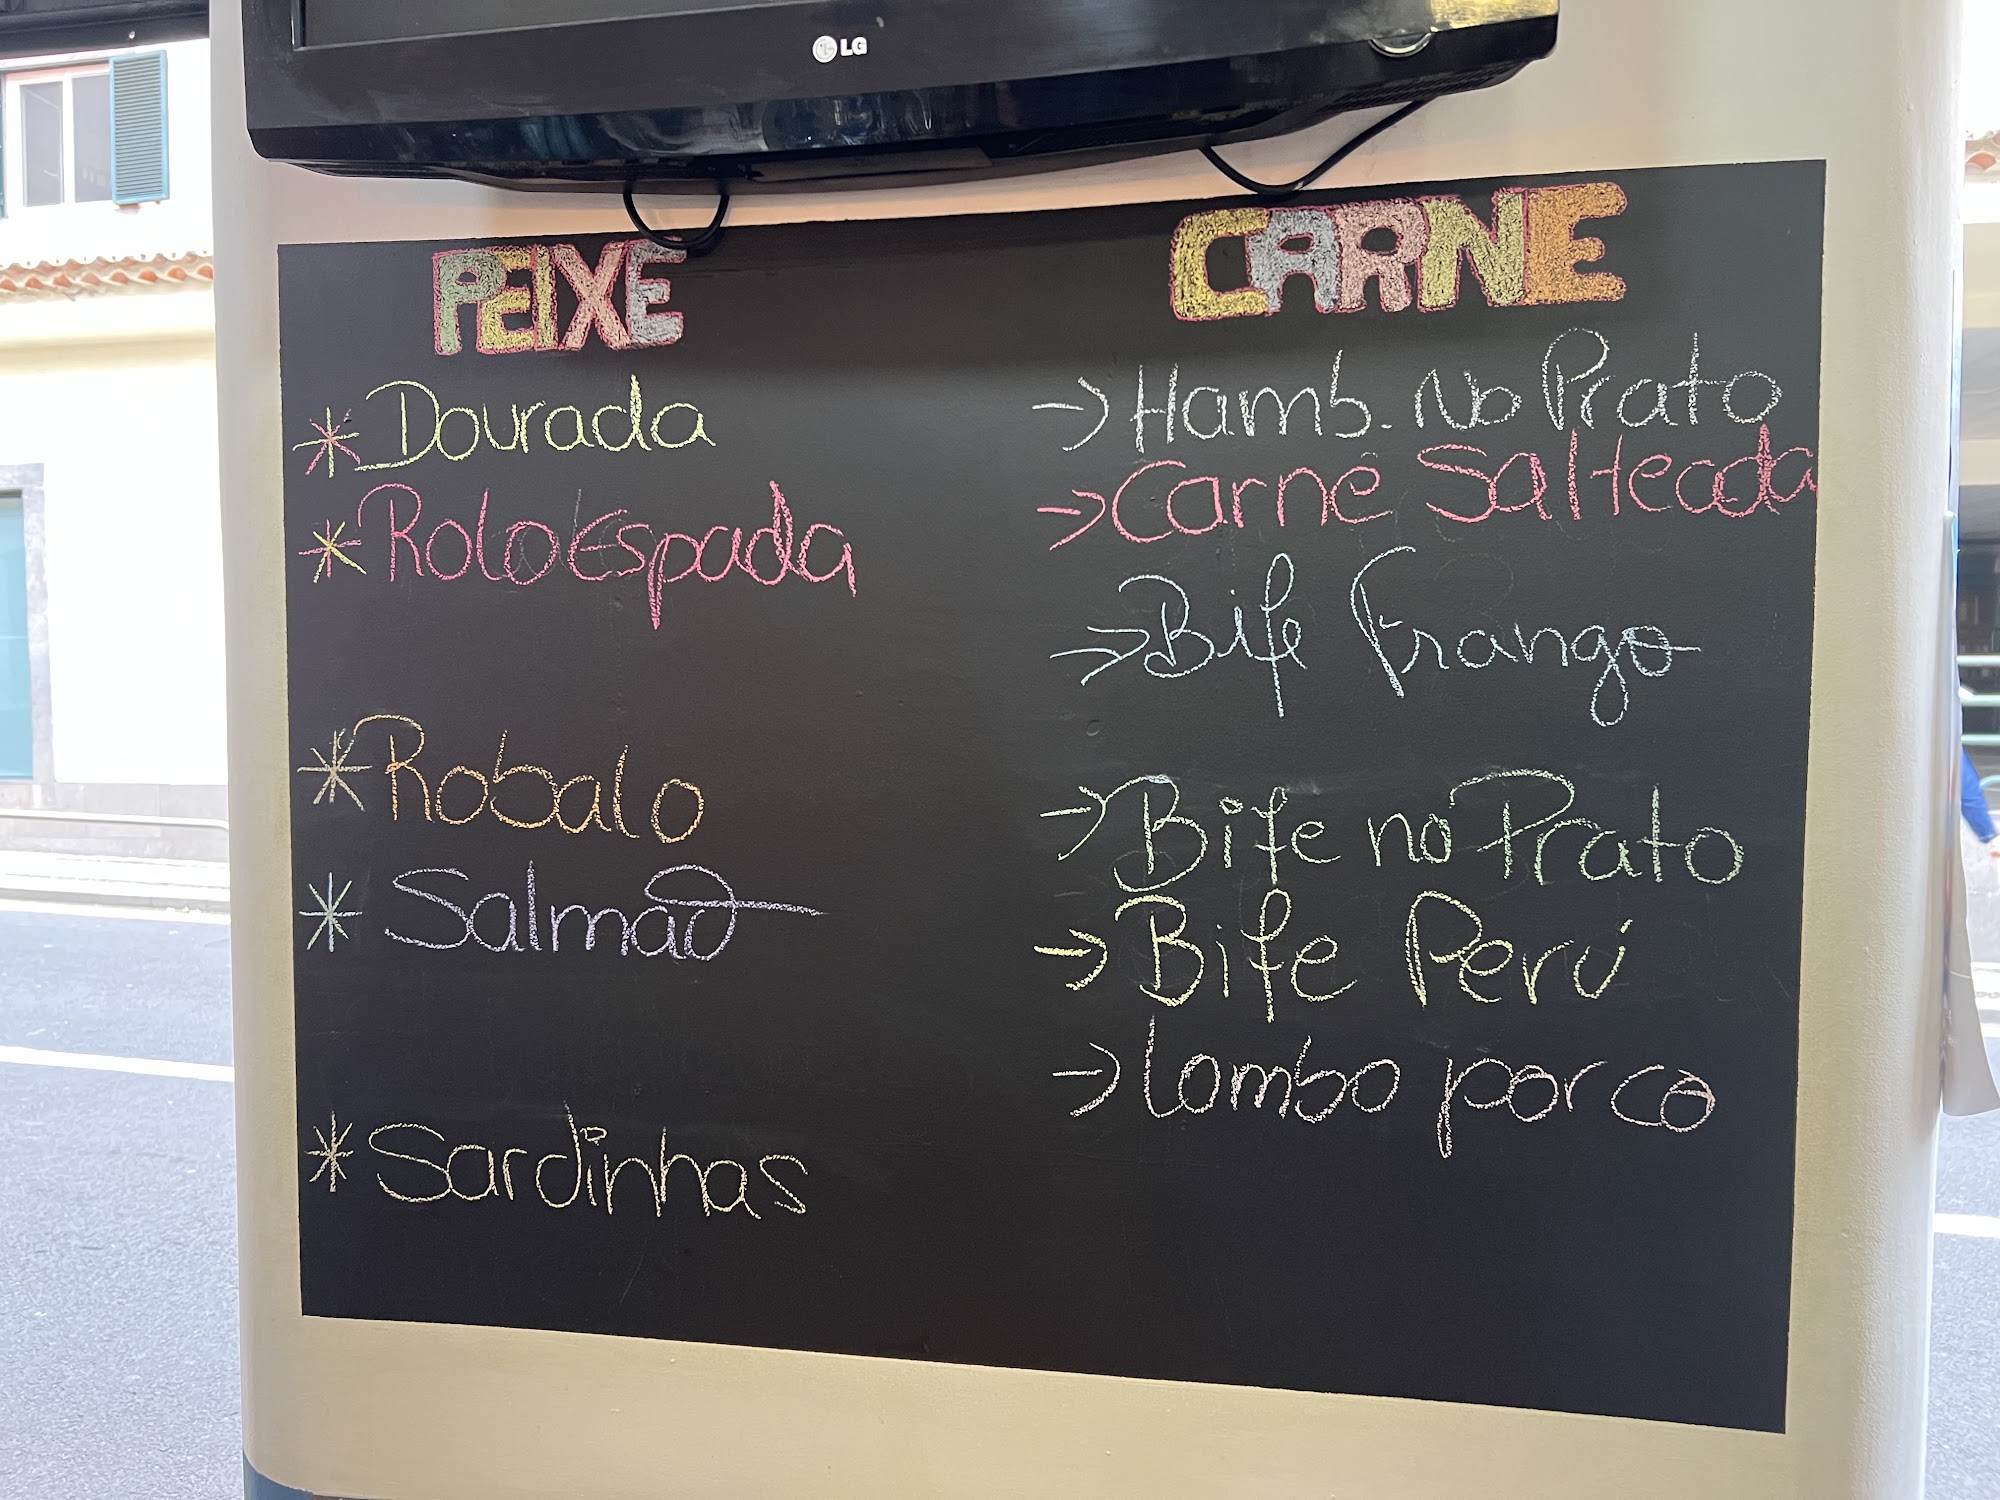 LG
PEIXE
Dourada
Rolo Espada
Robalo
Salmão
Sardinhas
CARNE
Hamb. No Prato
Carne Salteada
Bife Frango
Bife no Prato
Bife Perú
lombo porco